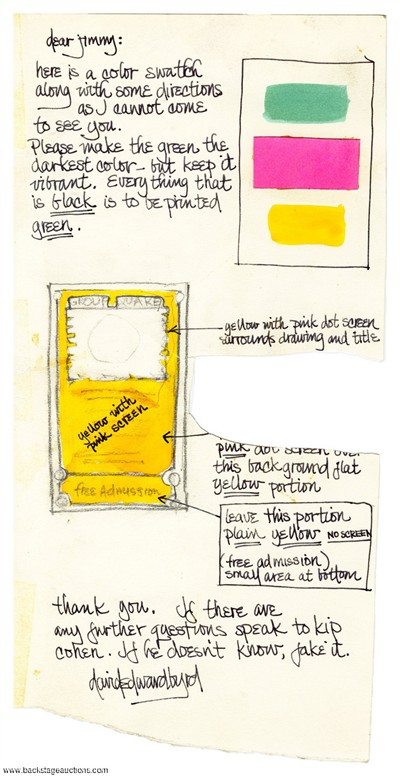 dear jimmy:
here is a color swatch
along with some directions
as I cannot come
to see you.
Please make the green the
darkest color - but keep it
vibrant. Everything that
is black is to be printed
green.
GROUP QUAKE
yellow with pink dot screen
surrounds drawing and title
yellow with
pink screen
pink dot screen over
this background flat
yellow portion
free Admission
leave this portion
plain yellow NO SCREEN
(free admission)
small area at bottom
thank you. If there are
any further questions speak to kip
cohen. If he doesn't know, fake it.
davidedwardbyrd
www.backstageauctions.com